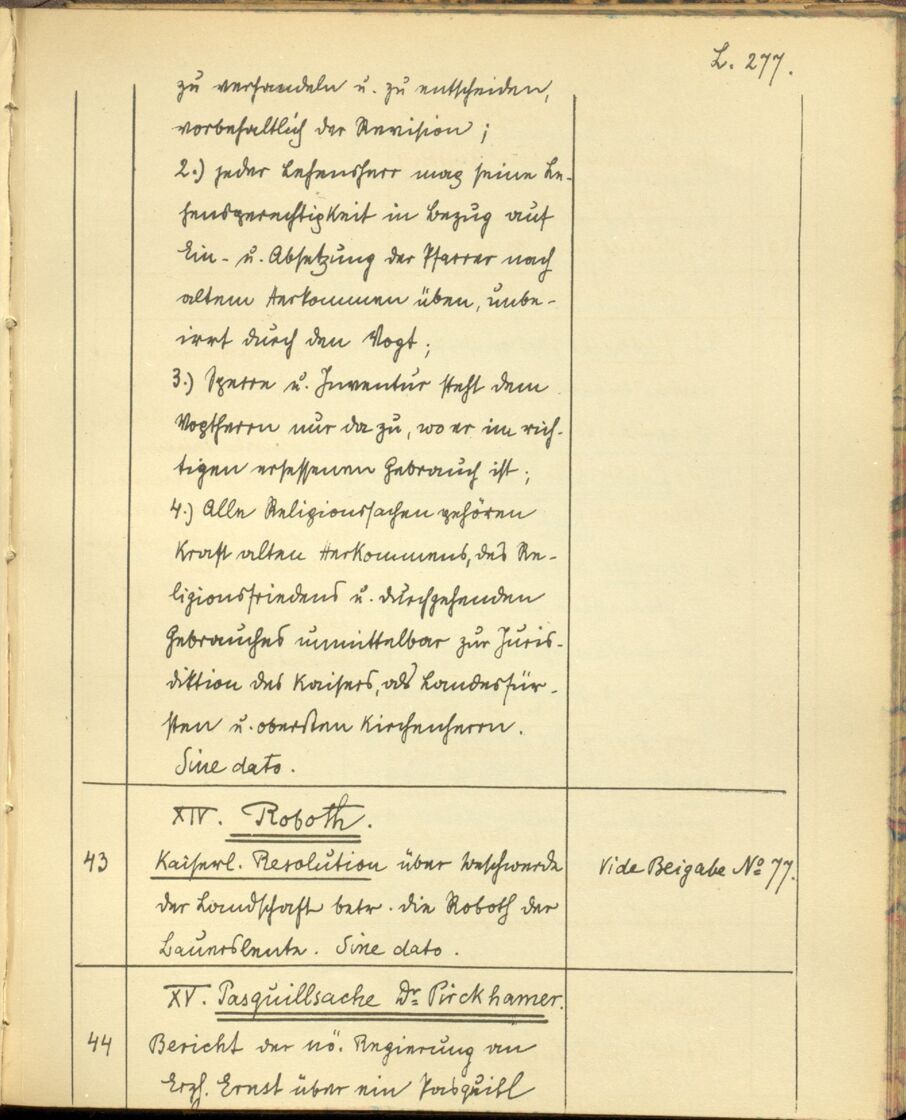 L. 277.
zu verhandeln u. zu entscheiden,
vorbehaltlich der Revision;
2.) jeder Lehensherr mag seine Le-
hensgerechtigkeit in Bezug auf
Ein- u. Absetzung der Pfarrer nach
altem Herkommen üben, unbe-
irrt durch den Vogt;
3.) Sperre u. Inventur steht dem
Vogtherrn nur da zu, wo er im rich-
tigen ersessenen Gebrauch ist;
4.) Alle Religionssachen gehören
Kraft alten Herkommens, des Re-
ligionsfriedens u. durchgehenden
Gebrauches unmittelbar zur Juris-
diktion des Kaisers, als Landesfür-
sten u. obersten Kirchenherrn.
Sine dato.
XIV. Roboth.
43 Kaiserl. Resolution über Beschwerde Vide Beigabe No 77.
der Landschaft betr. die Roboth der
Bauersleute. Sine dato.
XV. Pasquillsache Dr Pirckhamer.
44 Bericht der nö. Regierung an
Erzh. Ernst über ein Pasquill